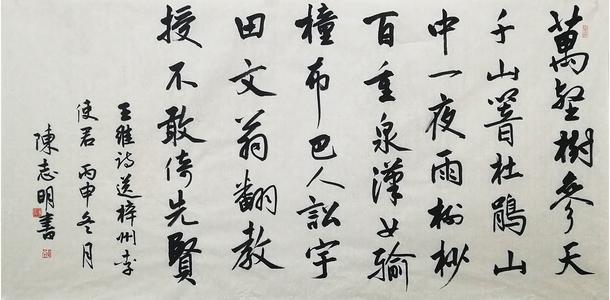 萬壑樹參天
千山響杜鵑山
中一夜雨樹杪
百重泉漢女輸
橦布巴人訟芋
田文翁翻教
授不敢倚先賢
王維詩送梓州李
使君 丙申冬月
陳志明書